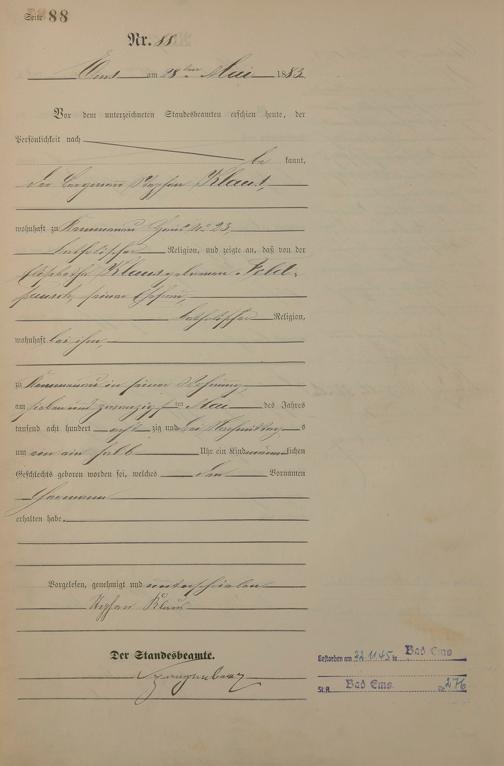 Seite 88
Nr. 88
Ems am 28ten Mai 1883
Vor dem unterzeichneten Standesbeamten erschien heute, der
Persönlichkeit nach
be kannt,
der Bergmann Stephan Klaus,
wohnhaft zu Kemmenau Haus No 23,
katholischer Religion, und zeigte an, daß von der
Klaus geborenen Feld-
seiner Ehefrau,
katholischer Religion,
wohnhaft bei ihm,
zu Kemmenau in seiner Wohnung,
am sieben und zwanzigsten Mai des Jahres
tausend acht hundert achtzig und drei Vormittags
um ein halb Uhr ein Kind männlichen
Geschlechts geboren worden sei, welches den Vornamen
Hermann
erhalten habe.
Vorgelesen, genehmigt und unterschrieben
Stephan Klaus
Der Standesbeamte.
Gestorben am 22.11.45 in Bad Ems
St.A. Bad Ems No 276